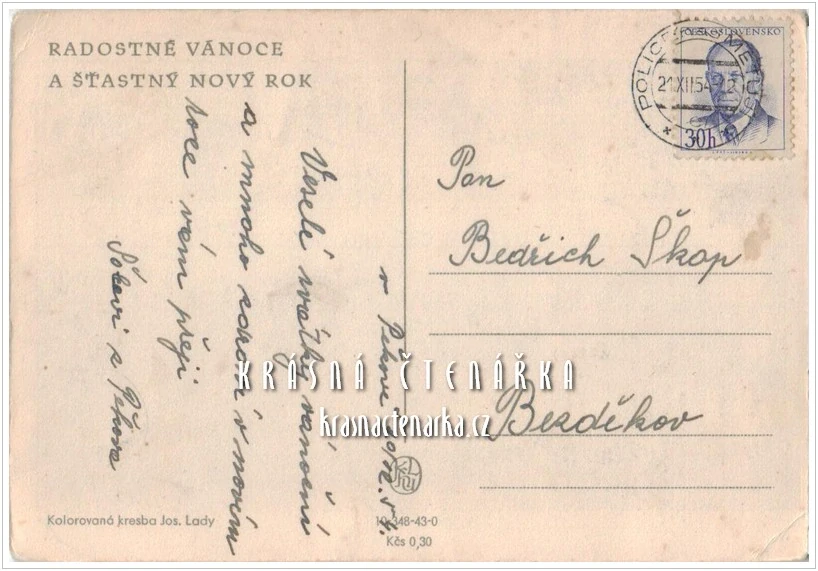 RADOSTNÉ VÁNOCE
A ŠŤASTNÝ NOVÝ ROK
ČESKOSLOVENSKO
30h
POLICE N. METUJÍ
21.XII.54-12
v Pěkově
Veselé svátky vánoční
a mnoho zdraví v novém
roce vám přejí
z Pěkova
Pan
Bedřich Škop
Bezděkov
KRÁSNÁ ČTENÁŘKA
krasnactenarka.cz
Kolorovaná kresba Jos. Lady
10-348-43-0
Kčs 0,30